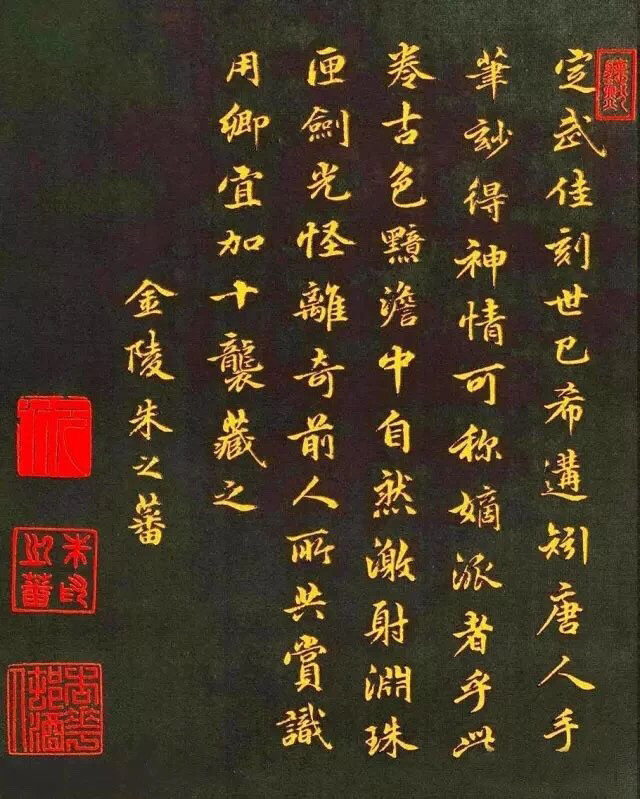 定武佳刻世已希遘矧唐人手
筆玅得神情可称嫡派者乎此
卷古色黯澹中自然激射淵珠
匣劍光怪離奇前人所共賞識
用卿宜加十襲藏之
金陵朱之蕃
朱之蕃印